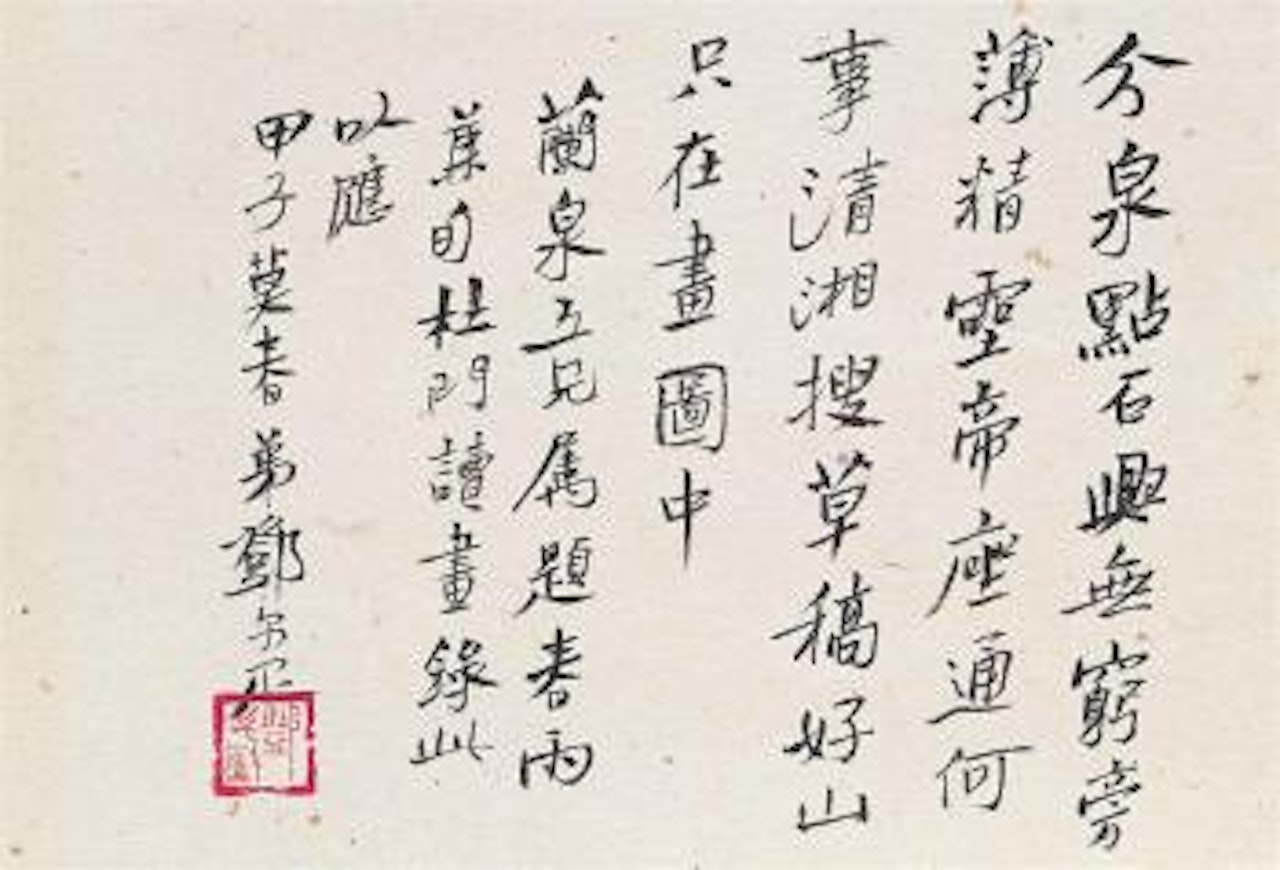 分泉點石興無窮旁
薄精靈帝座通何
事清湘搜草稿好山
只在畫圖中
蘭泉五兄属題春雨
兼旬杜門讀畫錄此
以應
甲子莫春弟鄧尔疋